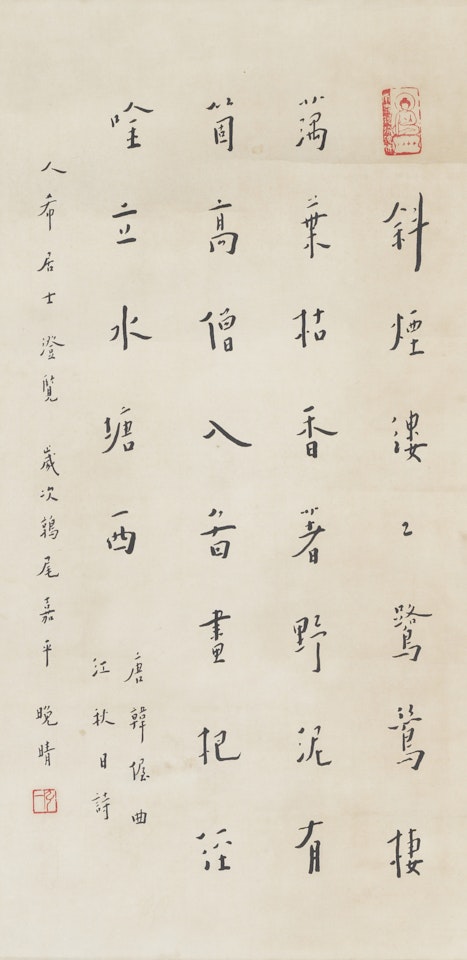 斜煙縷〻鷺鷥棲
藕葉枯香著野泥有
箇高僧入畫把經
唫立水塘西
唐韓偓曲
江秋日詩
人希居士澄覽 歲次鶉尾嘉平 晚晴
弘一